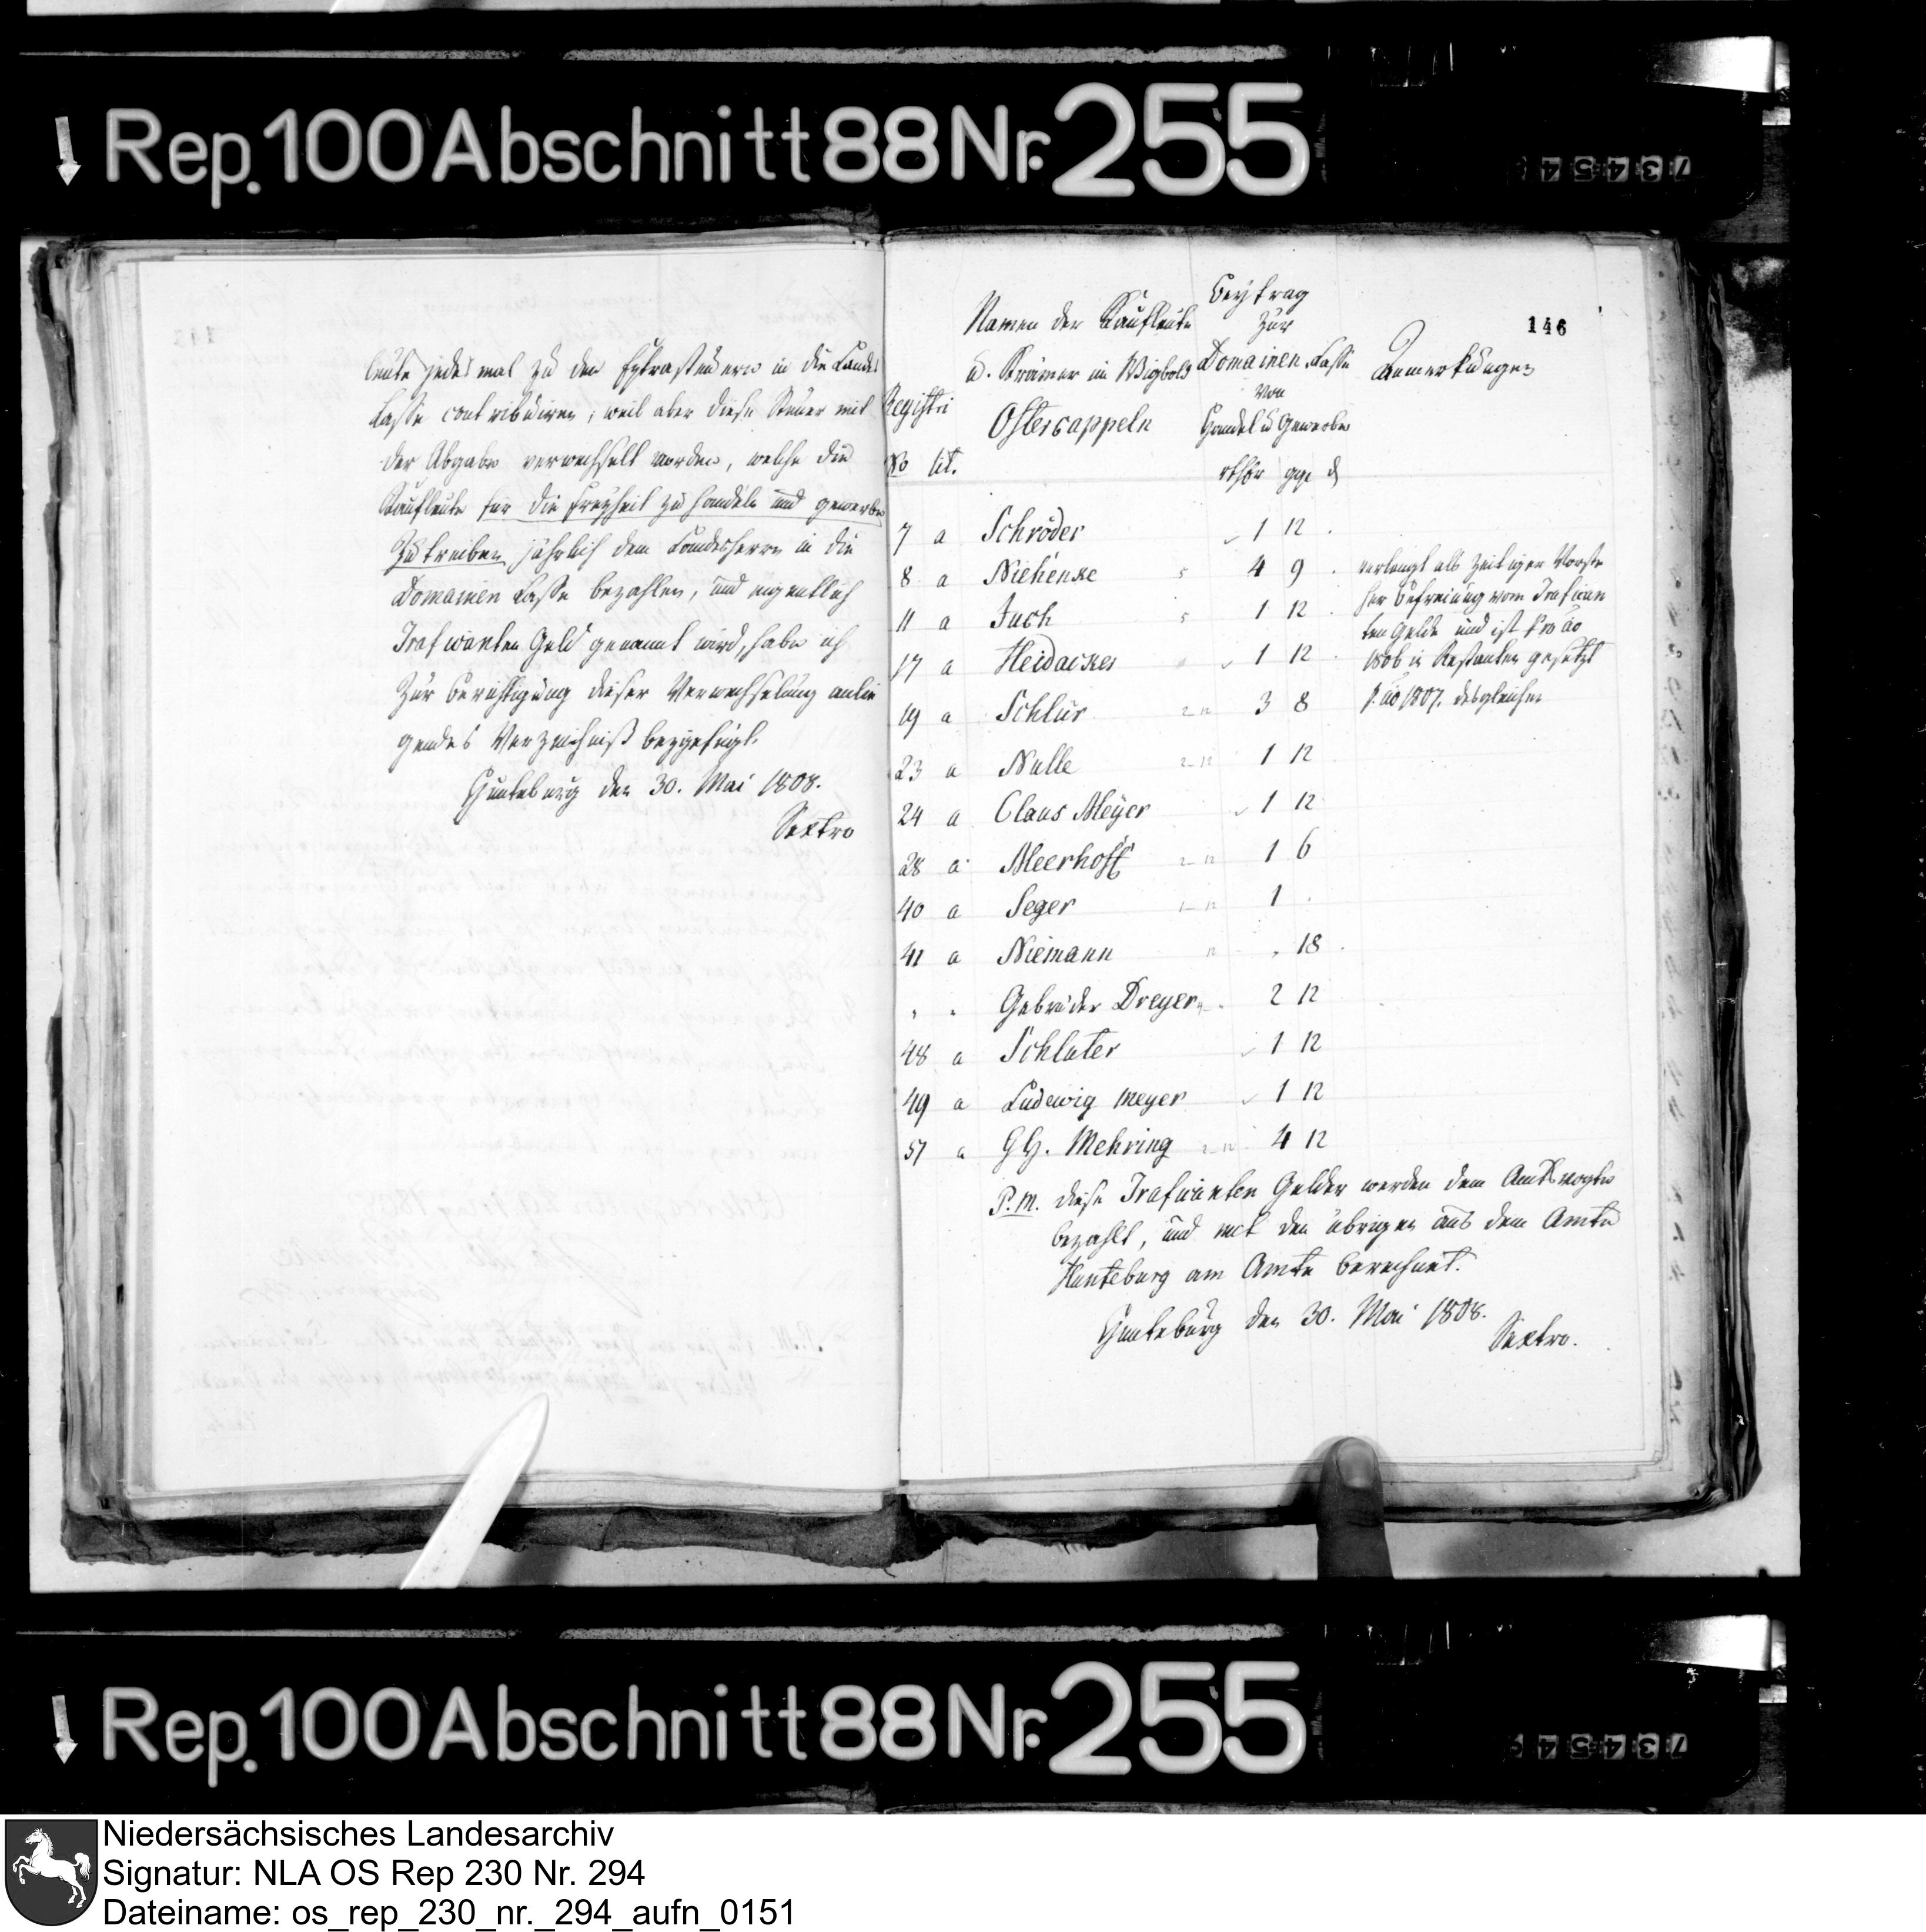 Rep. 100 Abschnitt 88 Nr. 255
73454
leute jedes mal zu den Extrasteuern in die Landes
Casse contribuiren, weil aber diese Steuer mit
der Abgabe verwechselt worden, welche die
Kaufleute für die Freyheit zu handeln und gewerbe
zu treiben jährlich dem Landesherrn in die
Domainen Casse bezahlen, und eigentlich
Trafikanten Geld genannt wird, habe ich
zur Berichtigung dieser Verwechselung anlie
gendes Verzeichniß beygefügt.
Hunteburg den 30. Mai 1808.
Sextro
146
Registri
No lit.
Namen der Kaufleute
u. Krämer im Wigbold
Ostercappeln
Beytrag
zur
Domainen Casse
von
Handel u Gewerbe
rthlr ggr d
Anmerkungen
7 a Schröder 1 12
8 a Niehenke 4 9
11 a Juch 1 12
17 a Heidacker 1 12
19 a Schlür 3 8
verlangt als zeitiger Vorste
her Befreiung vom Trafican
ten Gelde und ist pro ao
1806 in Restanten gesetzt
p. ao 1807. desgleichen
23 a Nulle 1 12
24 a Claus Meÿer 1 12
28 a Meerhoff 1 6
40 a Seger 1
41 a Niemann 18
" " Gebrüder Dreyer 2 12
48 a Schluter 1 12
49 a Ludewig Meyer 1 12
57 a GH. Mehring 4 12
P.M. diese Trafikanten Gelder werden dem Amtsvogte
bezahlt, und mit den übrigen aus dem Amte
Hunteburg am Amte berechnet.
Hunteburg den 30. Mai 1808.
Sextro.
Rep. 100 Abschnitt 88 Nr. 255
73454
Niedersächsisches Landesarchiv
Signatur: NLA OS Rep 230 Nr. 294
Dateiname: os_rep_230_nr._294_aufn_0151